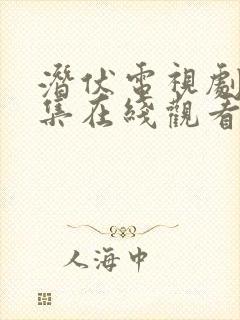 潛伏電視劇
集在綫觀看
人海中